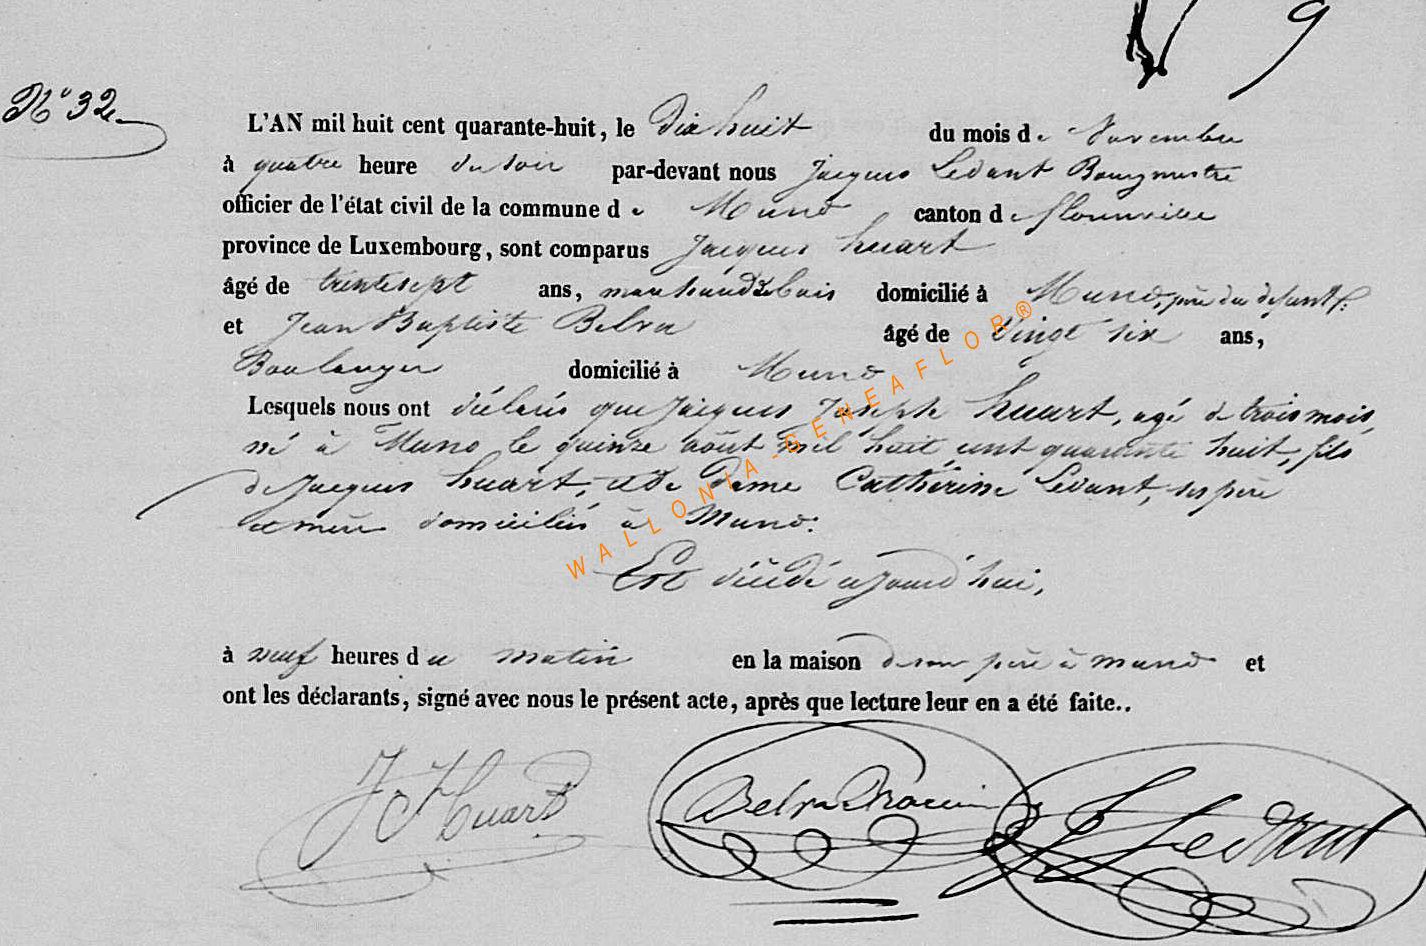 9
N° 32
L'AN mil huit cent quarante-huit, le Dix huit du mois de Novembre
à quatre heure du soir par-devant nous Jacques Ledant Bourgmestre
officier de l'état civil de la commune de Muno canton de florenville
province de Luxembourg, sont comparus Jacques huart
âgé de trente sept ans, marchand de bois domicilié à Muno, père du défunt
et Jean Baptiste Belva âgé de Vingt six ans,
Boulanger domicilié à Muno
Lesquels nous ont déclarés que Jacques Joseph huart, agé de trois mois,
né à Muno le quinze août mil huit cent quarante huit, fils
de Jacques huart, et de Dame Cathérine Ledant, ses père
et mère domiciliés à Muno.
Est décédé cejourd'hui,
à neuf heures du matin en la maison de son père à muno et
ont les déclarants, signé avec nous le présent acte, après que lecture leur en a été faite..
J Huart Belva J Ledant
WALLONIA-GENEAFLOR®